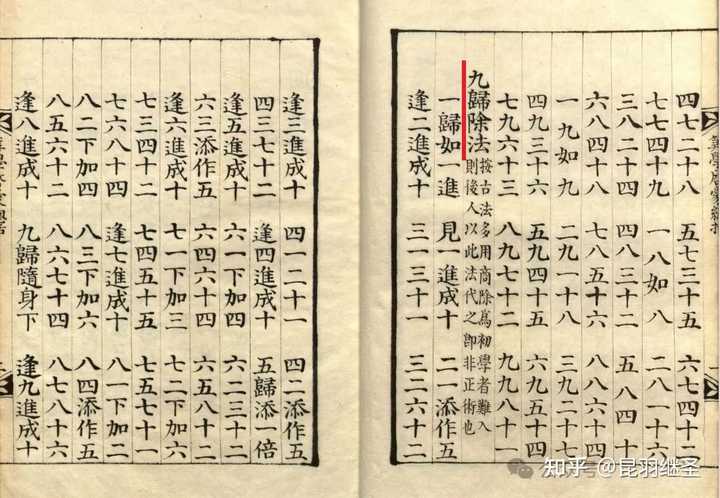 四七二十八 五七三十五 六七四十二
七七四十九 一八如八 二八一十六
三八二十四 四八三十二 五八四十
六八四十八 七八五十六 八八六十四
一九如九 二九一十八 三九二十七
四九三十六 五九四十五 六九五十四
七九六十三 八九七十二 九九八十一
九歸除法 按古法多用商除爲初學者難入
則後人以此法代之即非正術也
一歸如一進 見一進成十 二一添作五
逢二進成十 三一三十一 三二六十二
逢三進成十 四一二十二 四二添作五
四三七十二 逢四進成十 五歸添一倍
逢五進成十 六一下加四 六二三十二
六三添作五 六四六十四 六五八十二
逢六進成十 七一下加三 七二下加六
七三四十二 七四五十五 七五七十一
七六八十四 逢七進成十 八一下加二
八二下加四 八三下加六 八四添作五
八五六十二 八六七十四 八七八十六
逢八進成十 九歸隨身下 逢九進成十
知乎 @昆羽继圣